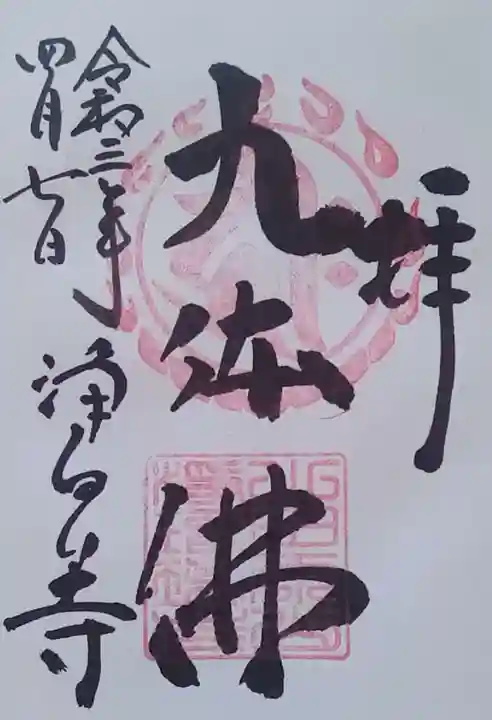 拝
九体佛
令和三年
四月七日
浄白寺